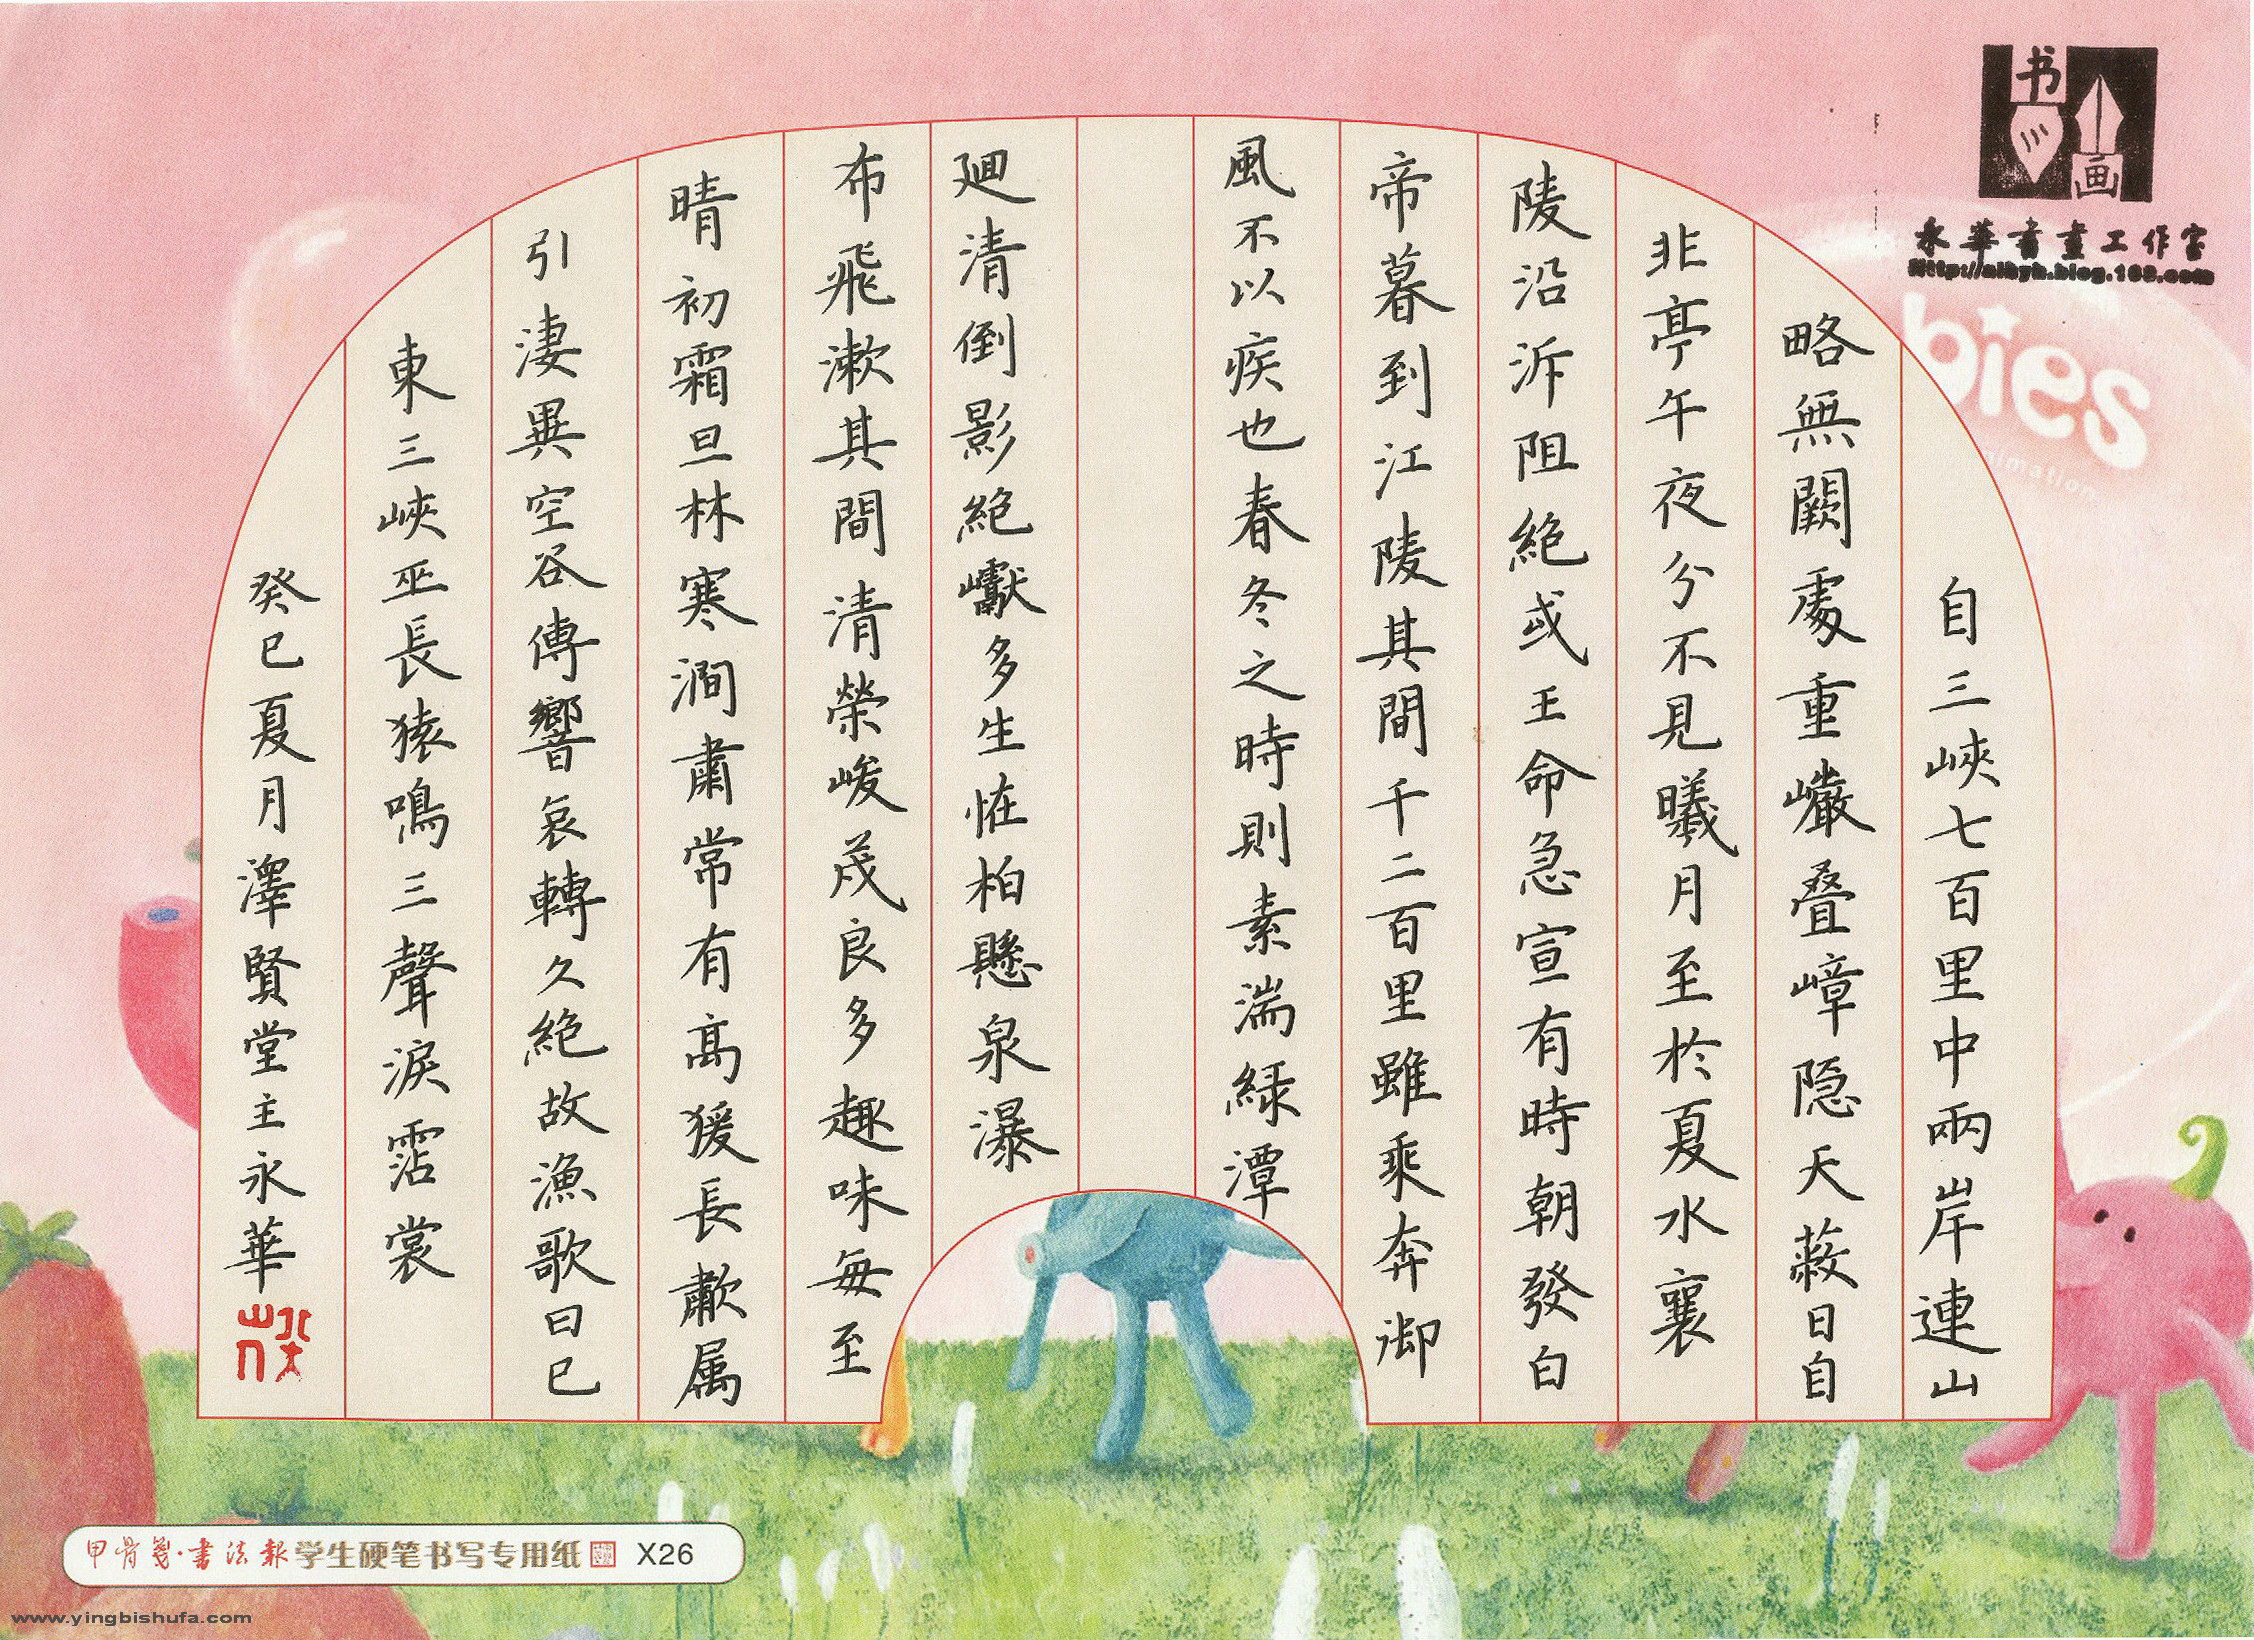 自三峽七百里中兩岸連山
略無闕處重巗叠嶂隐天蔽日自
非亭午夜分不見曦月至於夏水襄
陵沿泝阻絕或王命急宣有時朝發白
帝暮到江陵其間千二百里雖乘奔御
風不以疾也春冬之時則素湍緑潭
廻清倒影絕巘多生恠柏懸泉瀑
布飛漱其間清榮峻茂良多趣味每至
晴初霜旦林寒澗肅常有高猨長歗属
引淒異空谷傳響哀轉久絕故漁歌曰巴
東三峽巫長猿鳴三聲淚霑裳
癸巳夏月澤賢堂主永華
书画
永華書畫工作室
Http://nihyh.blog.163.com
bies
animation
甲骨箋·書法報学生硬笔书写专用纸 X26
www.yingbishufa.com